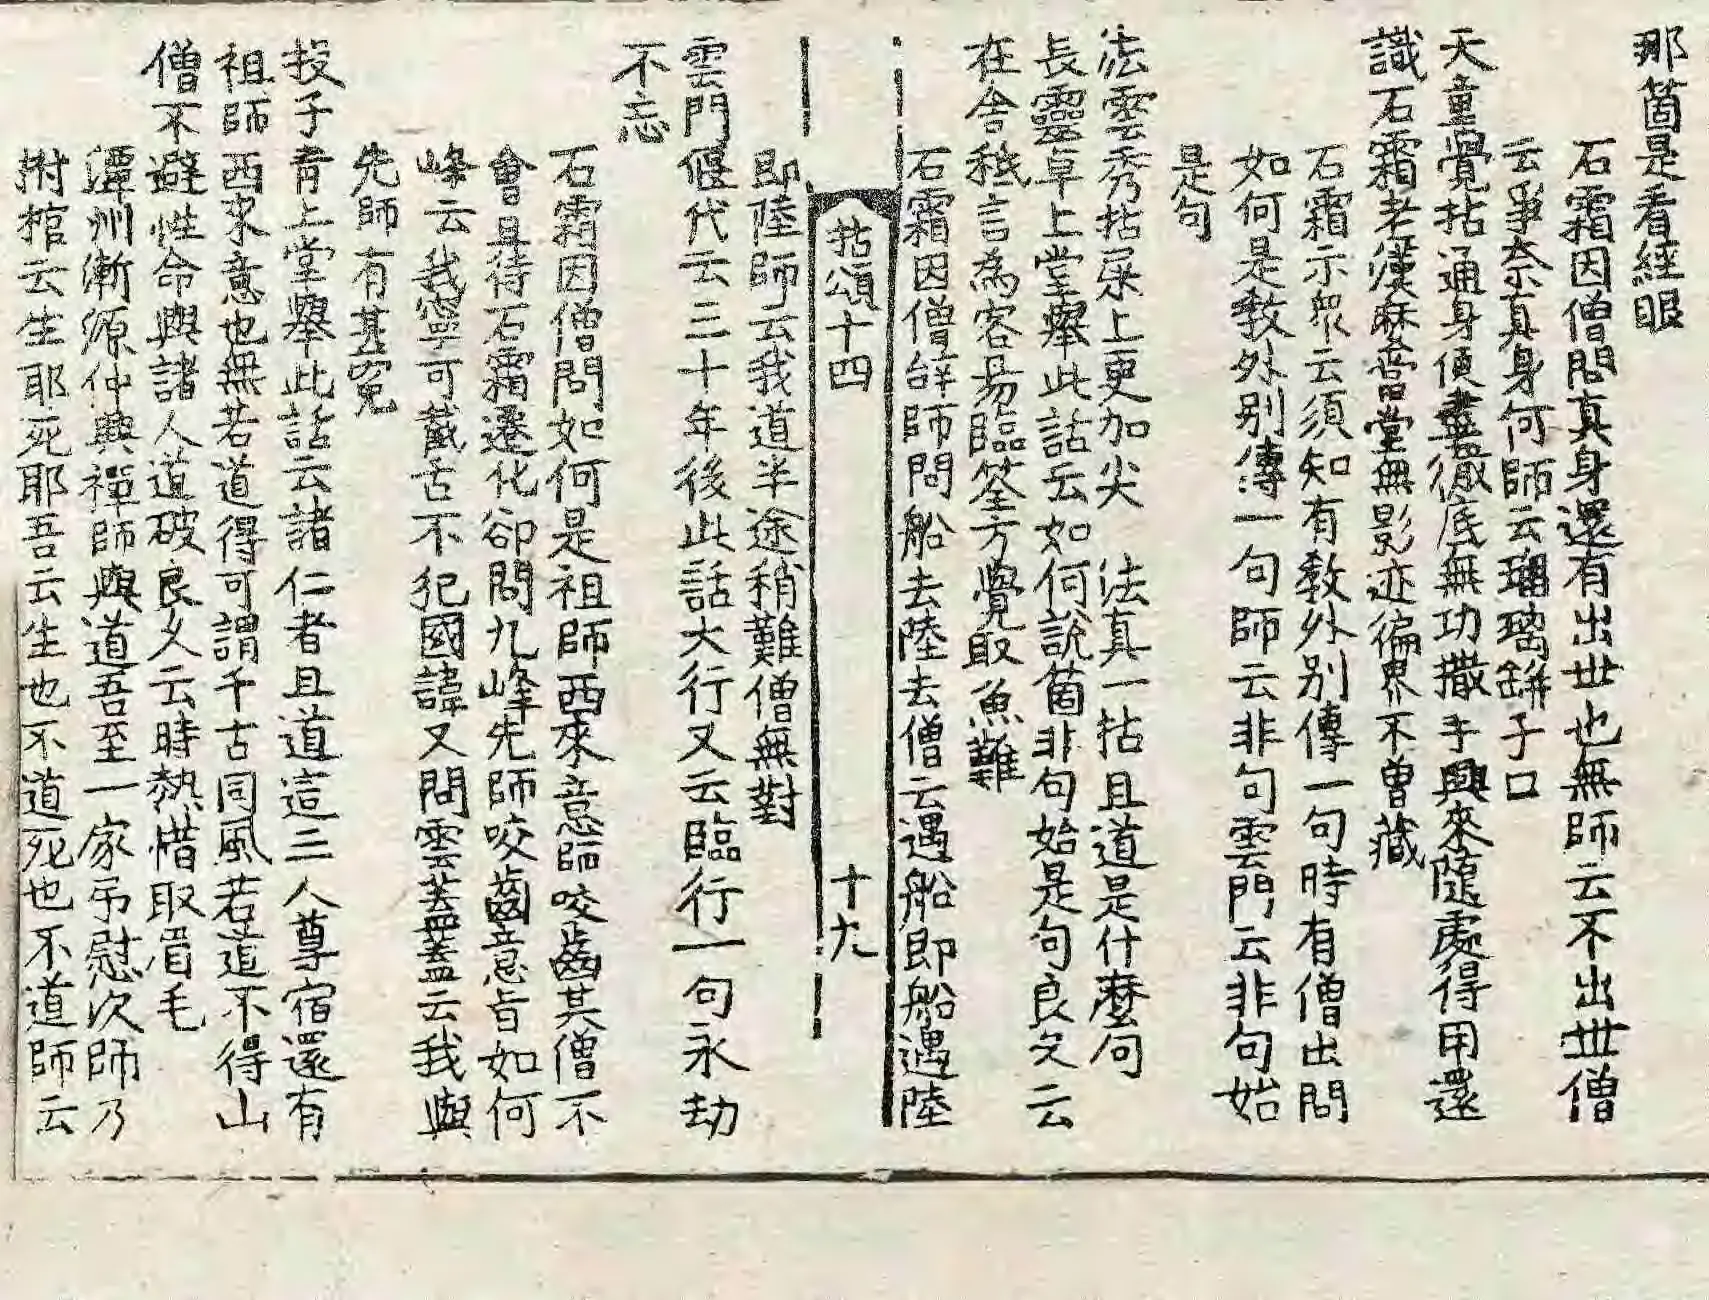 那箇是看經眼
石霜因僧問真身還有出世也無師云不出世僧
云爭奈真身何師云瑠璃缾子口
天童覺拈通身便盡徹底無功撒手興來隨處得用還
識石霜老漢麽當堂無影迹徧界不曾藏
石霜示衆云須知有教外别傳一句時有僧出問
如何是教外别傳一句師云非句雲門云非句始
是句
法雲秀拈屎上更加尖 法真一拈且道是什麽句
長靈卓上堂擧此話云如何說箇非句始是句良久云
在舍秖言為客易臨筌方覺取魚難
石霜因僧辞師問船去陸去僧云遇船即船遇陸
拈頌十四 十九
即陸師云我道半途稍難僧無對
雲門偃代云三十年後此話大行又云臨行一句永劫
不忘
石霜因僧問如何是祖師西來意師咬齒其僧不
會且待石霜遷化卻問九峰先師咬齒意旨如何
峰云我寧可截舌不犯國諱又問雲蓋蓋云我與
先師有甚寃
投子青上堂擧此話云諸仁者且道這三人尊宿還有
祖師西來意也無若道得可謂千古同風若道不得山
僧不避性命與諸人道破良久云時熱惜取眉毛
潭州漸源仲興禪師與道吾至一家吊慰次師乃
拊棺云生耶死耶吾云生也不道死也不道師云